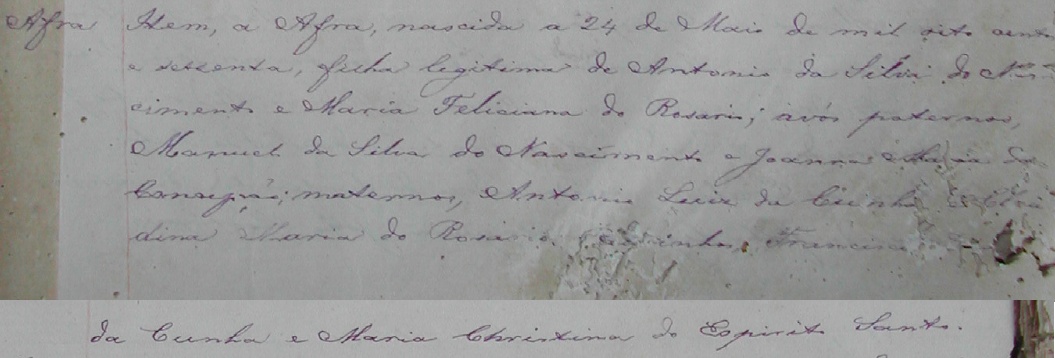 Afra Item, a Afra, nascida a 24 de Maio de mil oito cento
e sessenta, filha legitima de Antonio da Silva do Nas-
cimento e Maria Feliciana do Rosario; avós paternos,
Manuel da Silva do Nascimento e Joanna Maria da
Conceição; maternos, Antonio Luiz da Cunha
dina Maria do Rosario. Padrinhos, Francisco
da Cunha e Maria Christina do Espirito Santo.